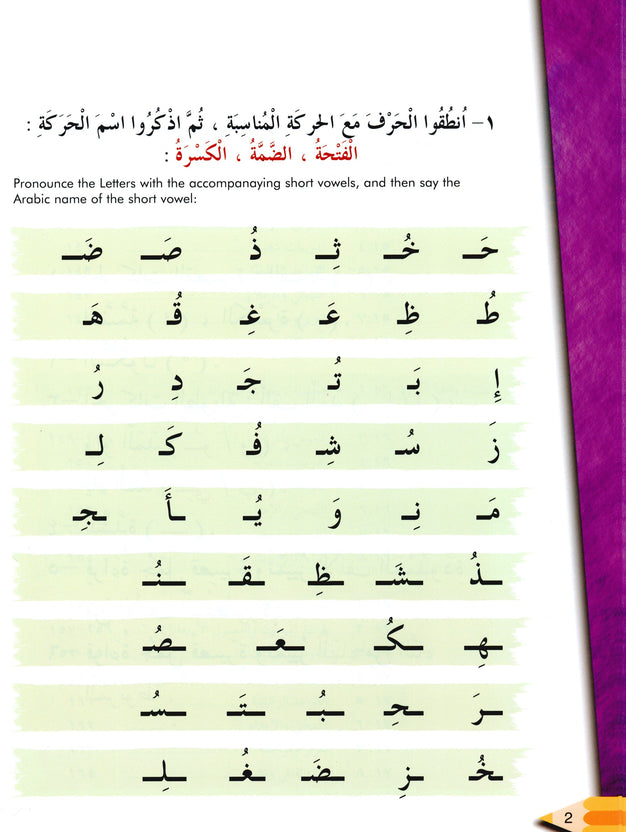 ١– اُنطُقُوا الْحَرْفَ مَعَ الحركةِ الْمُناسِبَةِ ، ثُمَّ اذْكُرُوا اسْمَ الْحَرَكَةِ :
الْفَتْحَةُ ، الضَّمَّةُ ، الْكَسْرَةُ :
Pronounce the Letters with the accompanaying short vowels, and then say the
Arabic name of the short vowel:
حَـ خُـ ثِـ ذُ صَـ ضَـ
طُ ظِ عَـ غِـ قُـ هَـ
إِ بَـ تُـ جَـ دِ رُ
زَ سُـ شِـ فُـ كَـ لِـ
مَـ نِـ وَ يُـ ـأَ ـجِـ
ـذُ ـشَـ ـظِـ ـقَـ ـنُـ
ـهِـ ـكُـ ـعَـ ـصُـ
ـرَ ـحِـ ـبُـ ـتَـ ـسُـ
ـخُـ ـزِ ـضَـ ـغُـ ـلِـ
2